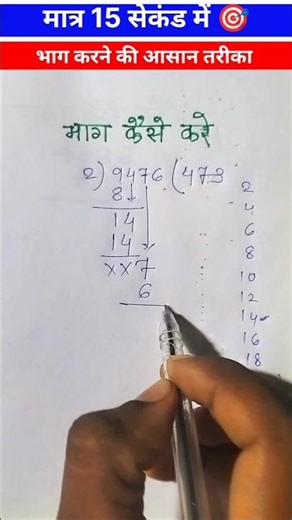 मात्र 15 सेकंड में 🎯
भाग करने की आसान तरीका
भाग कैसे करे
2) 9476 (473
8
14
14
××7
6
2
4
6
8
10
12
14
16
18